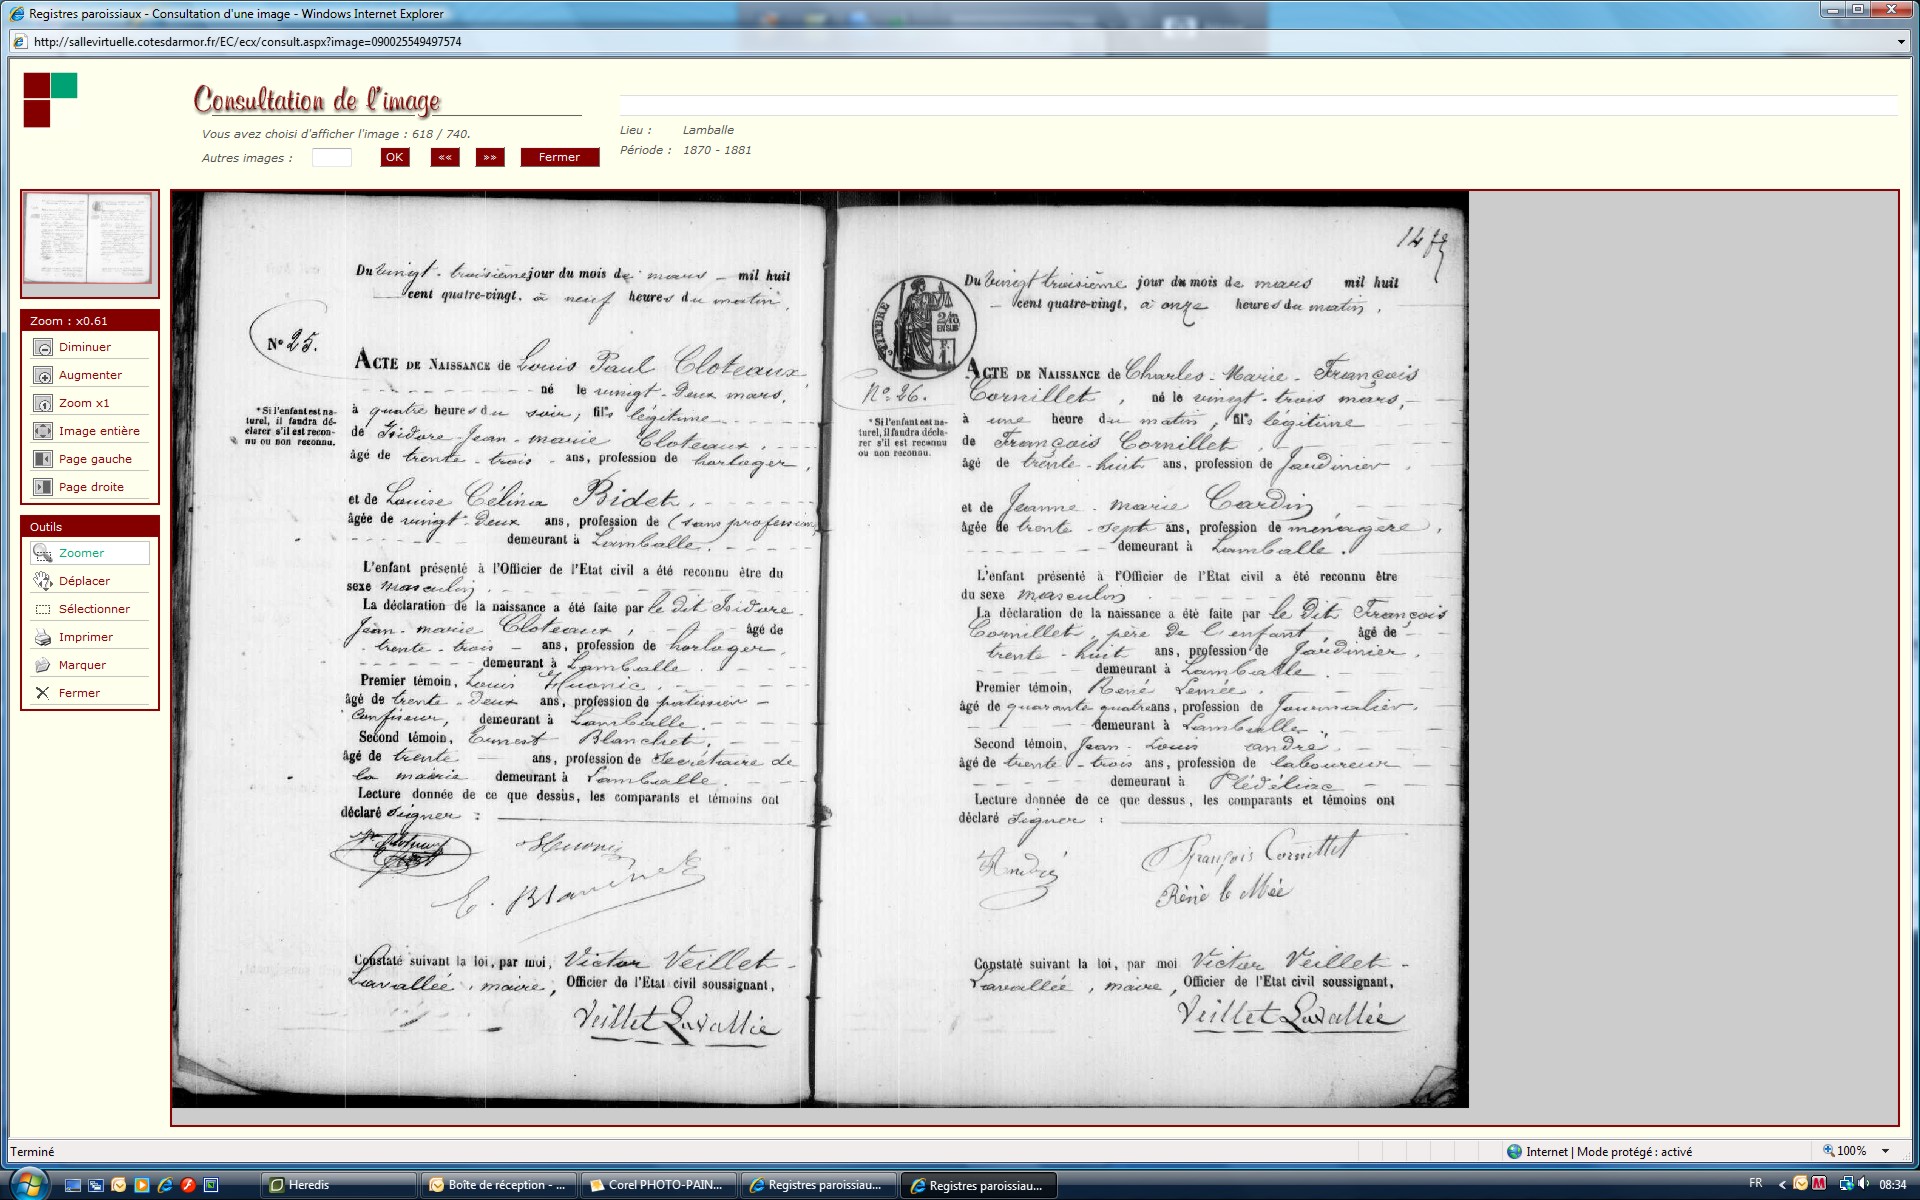 Registres paroissiaux - Consultation d'une image - Windows Internet Explorer
http://sallevirtuelle.cotesdarmor.fr/EC/ecx/consult.aspx?image=090025549497574
Consultation de l'image
Vous avez choisi d'afficher l'image : 618 / 740.
Autres images :
OK
««
»»
Fermer
Lieu : Lamballe
Période : 1870 - 1881
Zoom : x0.61
Diminuer
Augmenter
Zoom x1
Image entière
Page gauche
Page droite
Outils
Zoomer
Déplacer
Sélectionner
Imprimer
Marquer
Fermer
Du vingt-troisième jour du mois de mars mil huit
cent quatre-vingt, à neuf heures du matin.
N° 25.
ACTE DE NAISSANCE de Louis Paul Cloteaux
né le vingt-deux mars,
à quatre heures du soir, fils légitime
* Si l'enfant est na-
turel, il faudra dé-
clarer s'il est recon-
nu ou non reconnu.
de Isidore-Jean-marie Cloteaux,
âgé de trente-trois ans, profession de horloger,
et de Louise Célina Bidet,
âgée de vingt-deux ans, profession de (sans profession)
demeurant à Lamballe.
L'enfant présenté à l'Officier de l'Etat civil a été reconnu être du
sexe masculin.
La déclaration de la naissance a été faite par le dit Isidore
Jean-marie Cloteaux, âgé de
trente-trois ans, profession de horloger,
demeurant à Lamballe.
Premier témoin, Louis Huonic,
âgé de trente-deux ans, profession de patissier-
confiseur, demeurant à Lamballe.
Second témoin, Ernest Blanchet,
âgé de trente ans, profession de secrétaire de
la mairie demeurant à Lamballe.
Lecture donnée de ce que dessus, les comparants et témoins ont
déclaré signer :
Huonic
E. Blanchet
Constaté suivant la loi, par moi, Victor Veillet-
Lavallée, maire, Officier de l'Etat civil soussignant,
Veillet Lavallée
TIMBRE
Du vingt troisième jour du mois de mars mil huit
cent quatre-vingt, à onze heures du matin.
N° 26.
ACTE DE NAISSANCE de Charles-Marie-François
Cornillet, né le vingt-trois mars,
à une heure du matin, fils légitime
* Si l'enfant est na-
turel, il faudra décla-
rer s'il est reconnu
ou non reconnu.
de François Cornillet,
âgé de trente-huit ans, profession de Jardinier,
et de Jeanne-marie Cardin,
âgée de trente-sept ans, profession de ménagère,
demeurant à Lamballe.
L'enfant présenté à l'Officier de l'Etat civil a été reconnu être
du sexe masculin.
La déclaration de la naissance a été faite par le dit François
Cornillet, père de l'enfant, âgé de
trente-huit ans, profession de Jardinier,
demeurant à Lamballe.
Premier témoin, René Lemée,
âgé de quarante quatre ans, profession de Journalier,
demeurant à Lamballe,
Second témoin, Jean-Louis andré,
âgé de trente-trois ans, profession de laboureur
demeurant à Plédéliac
Lecture donnée de ce que dessus, les comparants et témoins ont
déclaré signer :
André
François Cornillet
Réné le Mée
Constaté suivant la loi, par moi Victor Veillet-
Lavallée, maire, Officier de l'Etat civil soussignant,
Veillet Lavallée
Terminé
Internet | Mode protégé : activé
100%
Heredis
Boîte de réception - ...
Corel PHOTO-PAIN...
Registres paroissiau...
Registres paroissiau...
FR
08:34